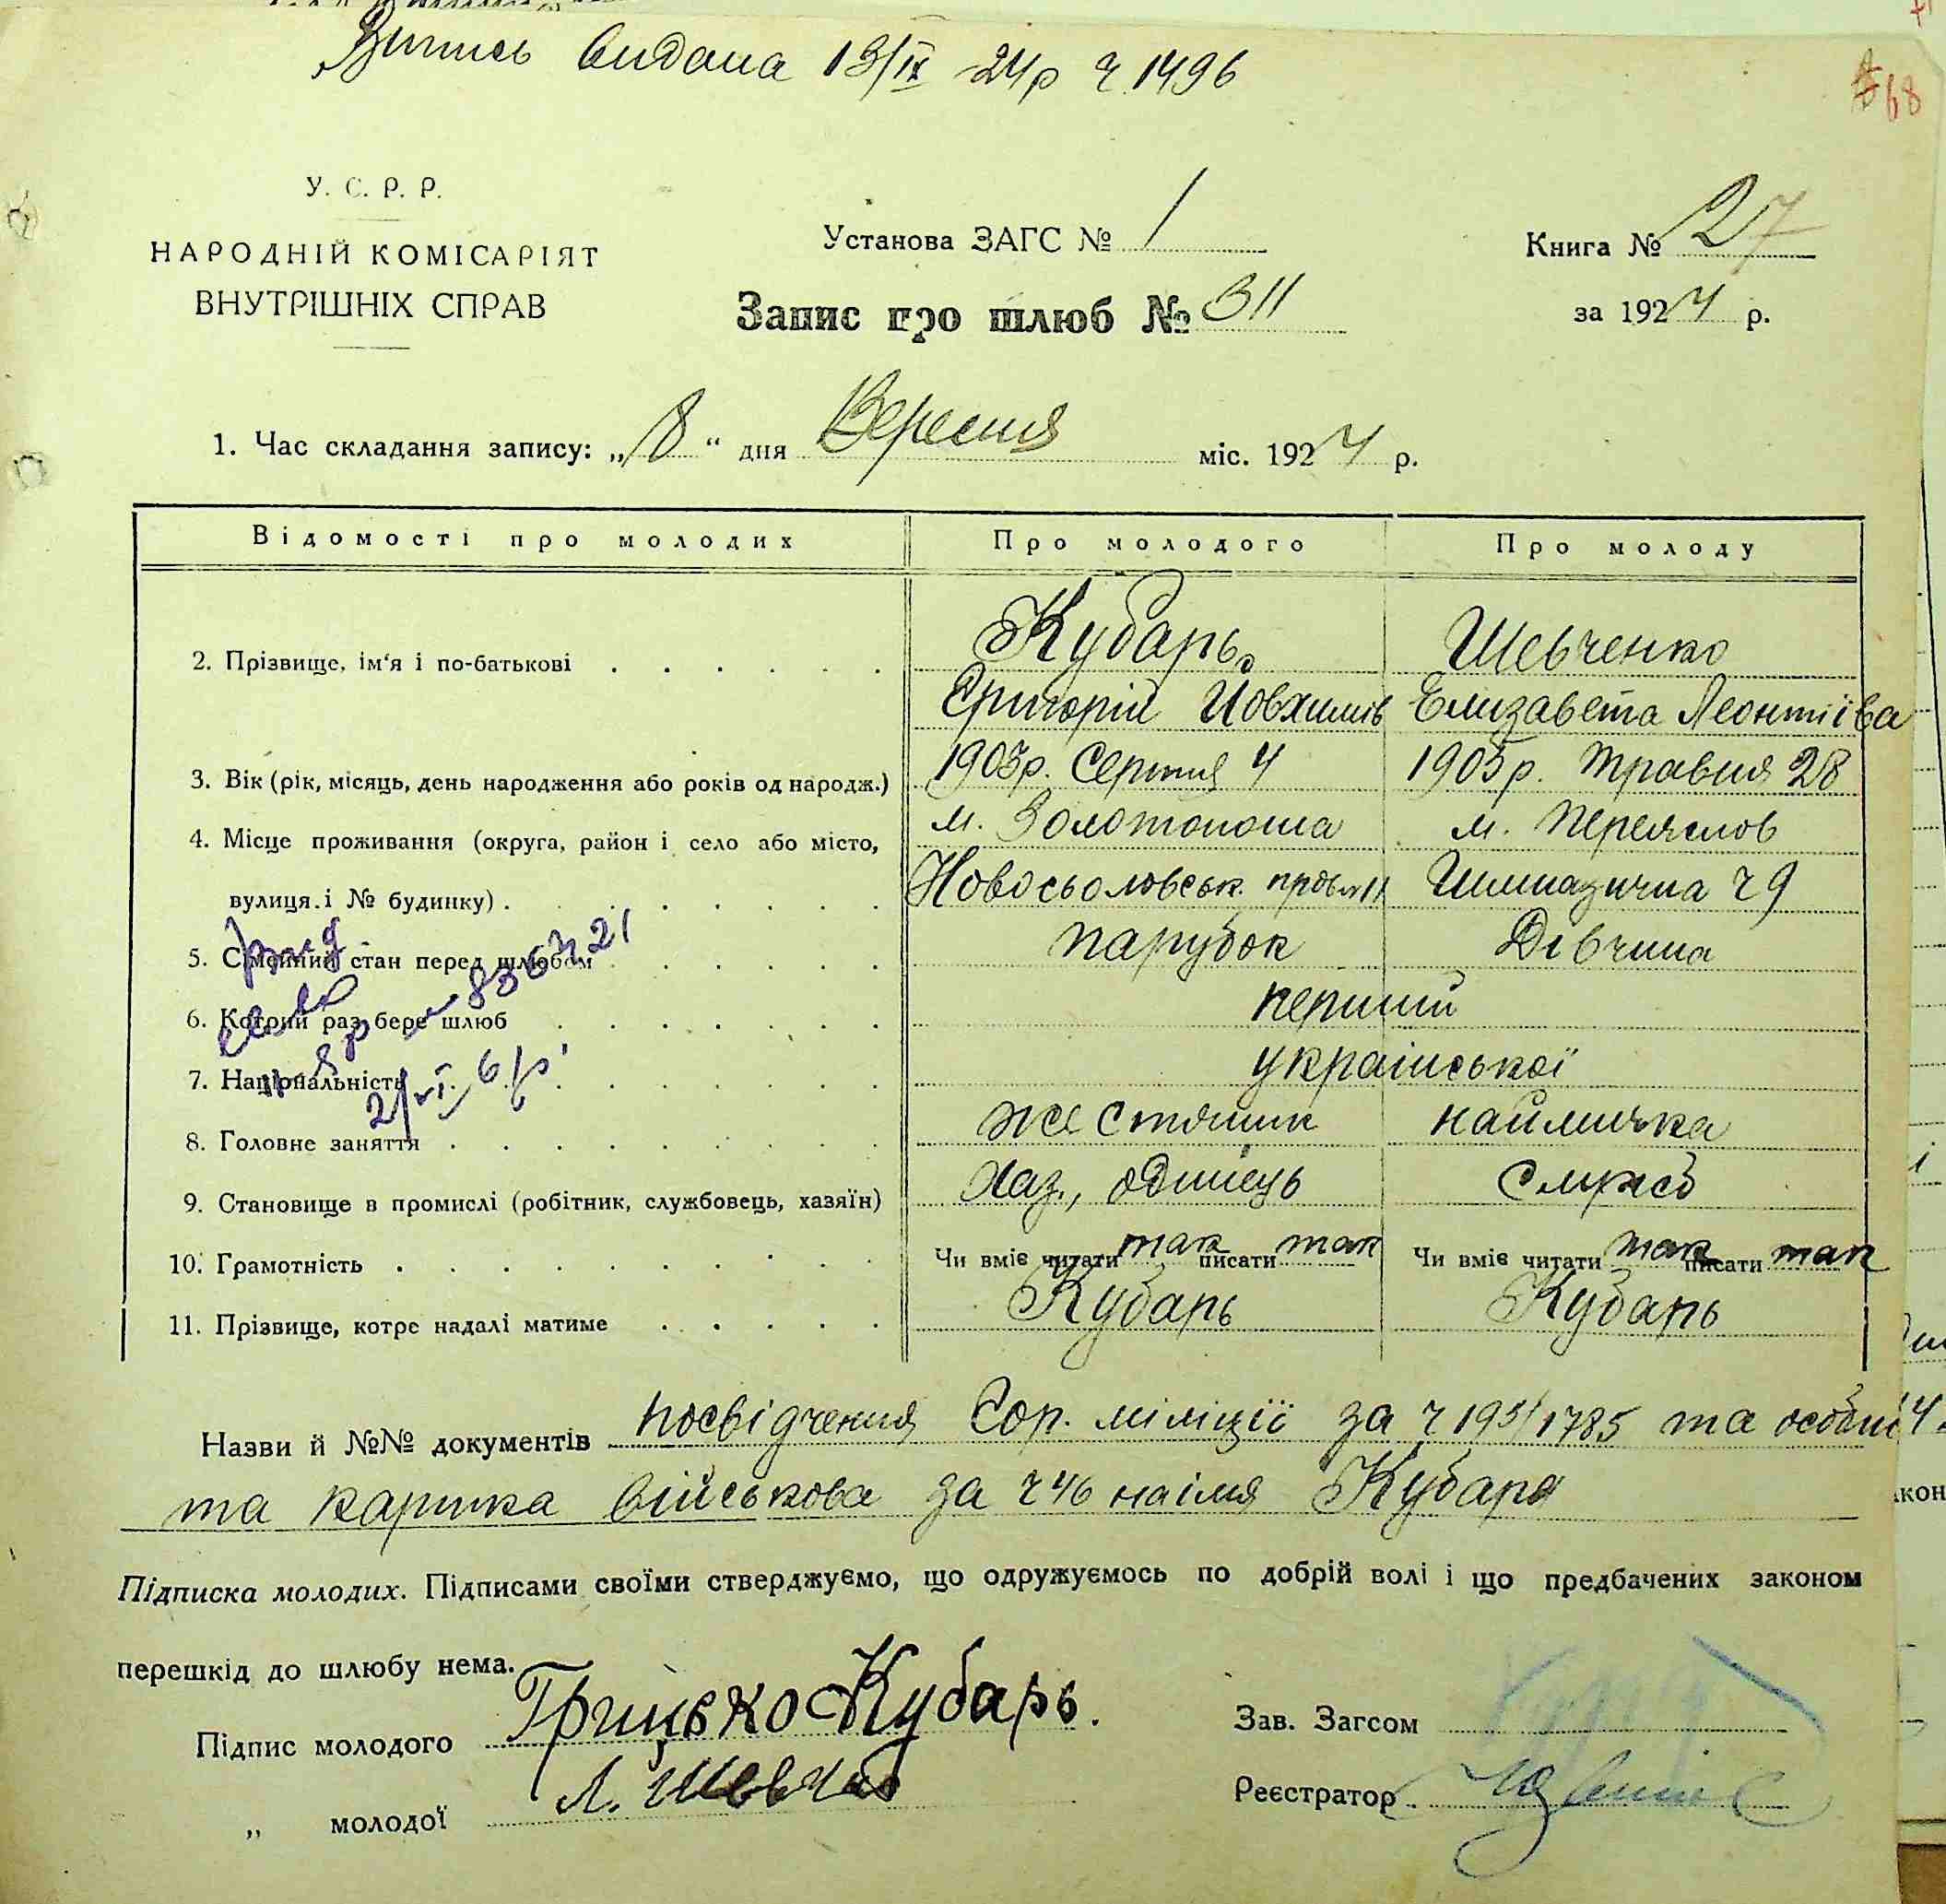 Витись видана 13/IX 24р ч 1496
68
У. С. Р. Р.
НАРОДНІЙ КОМІСАРІЯТ
ВНУТРІШНІХ СПРАВ
Установа ЗАГС № 1
Книга № 27
Запис про шлюб № 311
за 1924 р.
1. Час складання запису: „8“ дня Вересня міс. 1924 р.
Відомості про молодих Про молодого Про молоду
Кубарь Шевченко
2. Прізвище, ім'я і по-батькові
Григорій Йовхимів Елизавета Леонтіїва
3. Вік (рік, місяць, день народження або років од народж.) 1903р. Серпня 4 1905р. Травня 28
4. Місце проживання (округа, район і село або місто, м. Золотоноша м. Переяслов
вулиця і № будинку) Новосьоловськ. 11 Гимназична ч 9
5. Сімейний стан перед шлюбом парубок Дівчина
6. Котрий раз бере шлюб перший
7. Національність української
8. Головне заняття жестяник наймичка
9. Становище в промислі (робітник, службовець, хазяїн) Хаз., одинець Служб
10. Грамотність Чи вміє читати так писати так Чи вміє читати так писати так
11. Прізвище, котре надалі матиме Кубарь Кубарь
Назви й №№ документів посвідчення Гор. міліції за ч 195/1785 та
та картка військова за ч 46 на імя Кубаря
Підписка молодих. Підписами своїми стверджуємо, що одружуємось по добрій волі і що предбачених законом
перешкід до шлюбу нема.
Підпис молодого Грицько Кубарь.
Зав. Загсом
„ молодої Л. Шевч
Реєстратор